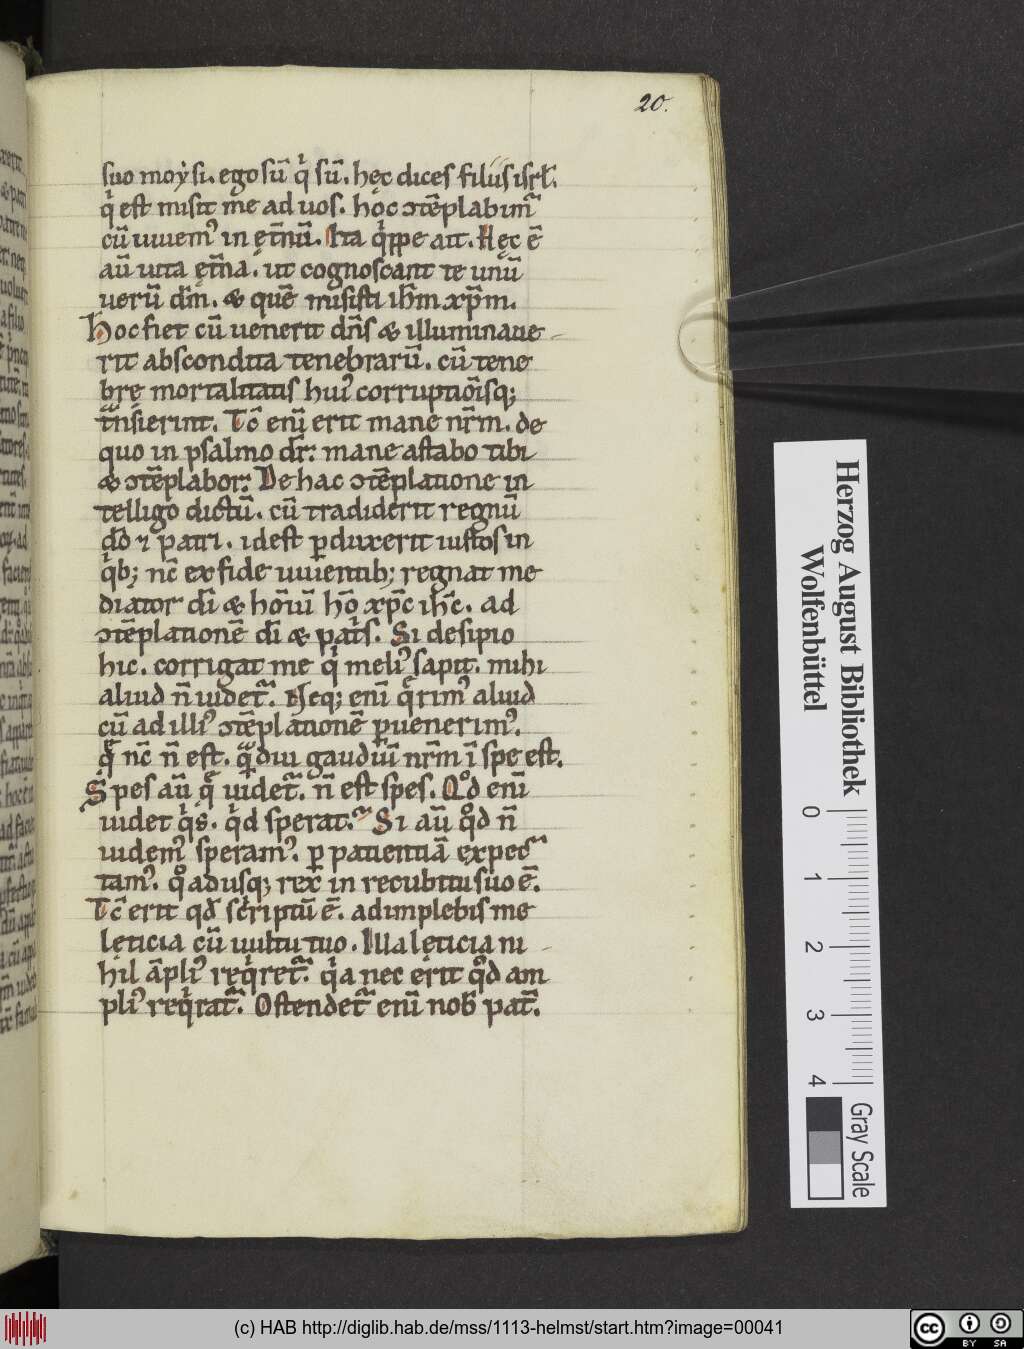 20.
suo moẏsi. ego sū qͥ sū. hęc dices filiis isrł.
qͥ est misit me ad uos. hoc ɔtēplabimͬ
cū uiuemꝰ in ęt̄nū. Ita qͥppe ait. Hęc ē
aū uita ęt̄na. ut cognoscant te unū
uerū dm̄. & quē misisti ih̄m xp̄m.
Hoc fiet cū uenerit dn̄s & illuminaue-
rit abscondita tenebrarū. cū tene
bre mortalitatis huiꝰ corruptiōisq;
tͣnsierint. Tc̄ enī erit mane nr̄m. de
quo in psalmo dr̄: mane astabo tibi
& ɔtēplabor: De hac ɔtēplatione in
telligo dictū. cū tradiderit regnū
dō ⁊ patri. idest ꝑduxerit iustos in
qͥb; nc̄ ex fide uiuentib; regnat me
diator dī & hōiuī hō xp̄c ih̄c. ad
ɔtēplationē dī & pat̄s. Si desipio
hic. corrigat me qͥ meliꝰ sapit. mihi
aliud n̄ uidetͬ. Neq; enī qͥrimꝰ aliud
cū ad illiꝰ ɔtēplationē ꝑuenerimꝰ.
q̄ nc̄ n̄ est. qͣmdiu gaudiū nr̄m ī spe est.
Spes aū q̄ uidetͬ. n̄ est spes. Qͦd enī
uidet qͥs. qͥd sperat. Si aū qͦd n̄
uidemꝰ speramꝰ. ꝑ patientiā expec
tamꝰ. qͦadusq; rex in recubitu suo ē.
Tc̄ erit qd̄ scͥptū ē. adimplebis me
lęticia cū uultu tuo. Illa lęticia ni-
hil āpliꝰ reqͥretͬ. qͥa nec erit qͦd am
pliꝰ reqͥratͬ. Ostendetͬ enī nob̄ pat̄.
Herzog August Bibliothek
Wolfenbüttel
0
1
2
3
4
Gray Scale
(c) HAB http://diglib.hab.de/mss/1113-helmst/start.htm?image=00041
cc
BY
SA